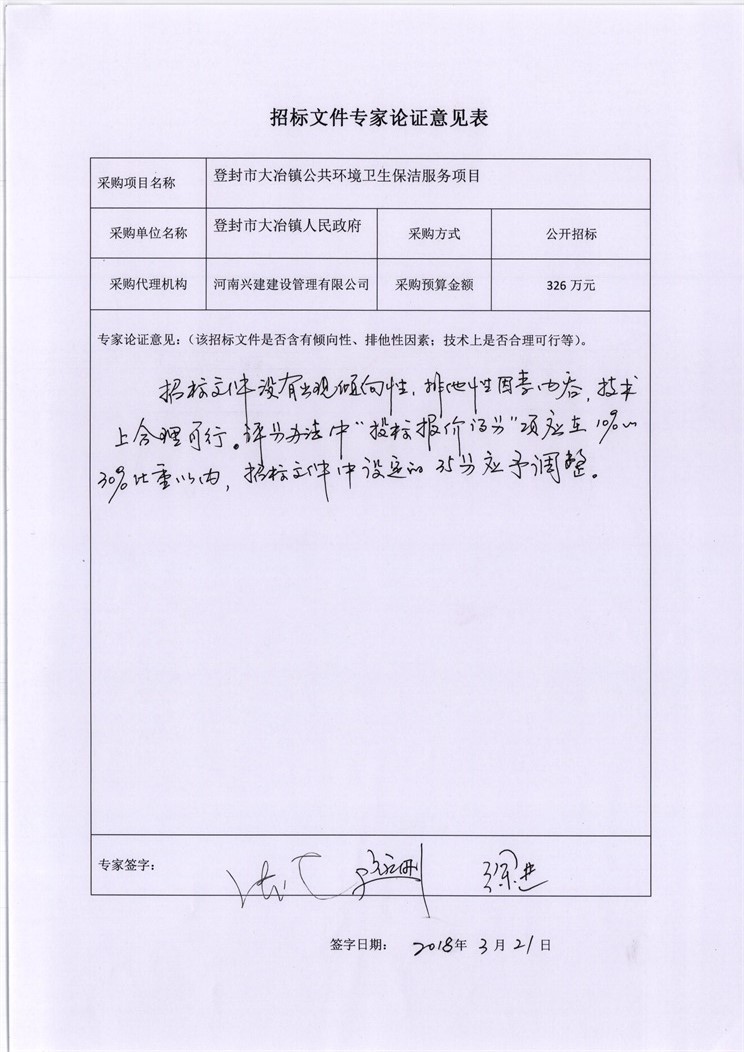 招标文件专家论证意见表
采购项目名称 登封市大冶镇公共环境卫生保洁服务项目
采购单位名称 登封市大冶镇人民政府 采购方式 公开招标
采购代理机构 河南兴建建设管理有限公司 采购预算金额 326 万元
专家论证意见：（该招标文件是否含有倾向性、排他性因素；技术上是否合理可行等）。
招标文件中没有出现倾向性，排他性因素内容，技术
上合理可行。评分办法中“投标报价得分”项应在10%~
30%比重以内，招标文件中设定的35分应予调整。
专家签字：
签字日期： 2018年 3 月 21 日